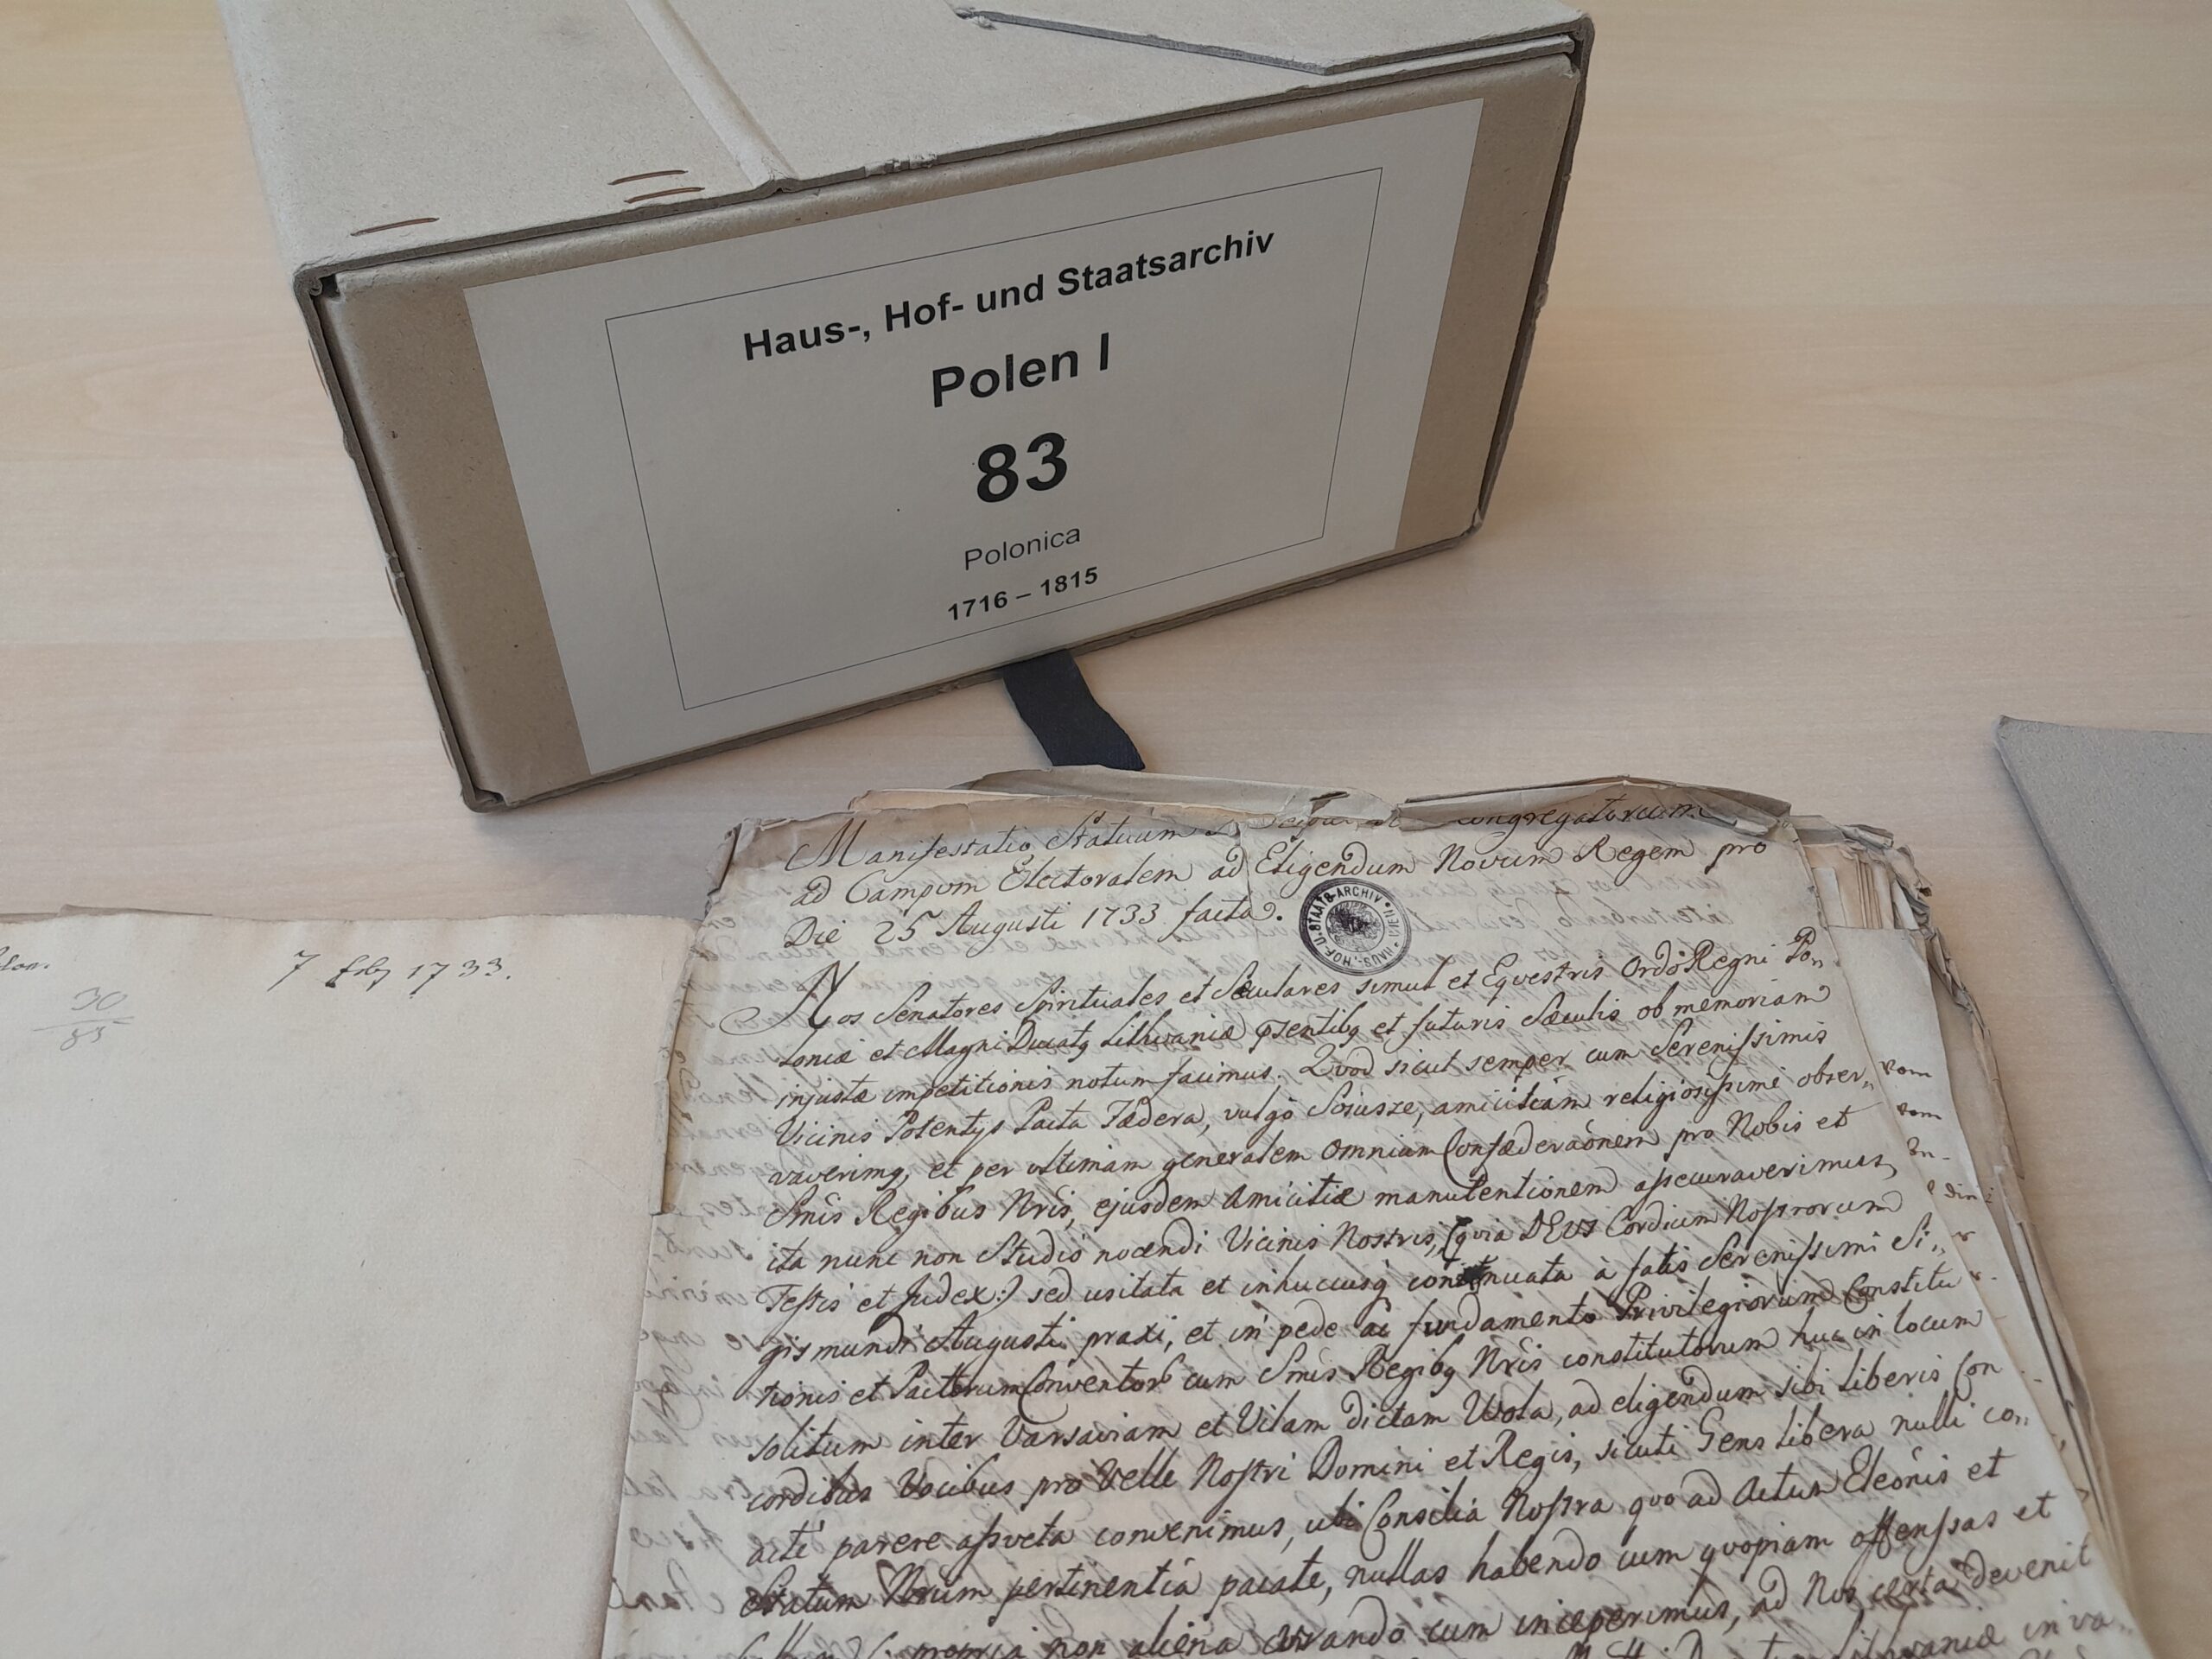 Haus-, Hof- und Staatsarchiv
Polen I
83
Polonica
1716 – 1815
7 1733.
30
85
Manifestatio Statuum congregatorum
ad Campum Electoralem ad Eligendum Novum Regem pro
Die 25 Augusti 1733 facta.
HAUS-, HOF- U. STAATS-ARCHIV WIEN
Nos Senatores Spirituales et Sæculares simul et Equestris Ordo Regni Po„
loniæ et Magni Ducatq Lithvaniæ pſentibq et futuris Sæculis ob memoriam
injustæ impetitionis notum facimus. Quod sicut semper cum Sereniſsimis
Vicinis Potentys Pacta Fædera, vulgo Soiusze, amicitiam religiosiſsimè obser„
vaverimq, et per ultimam generalem omnium Confæderaõnem pro Nobis et
Smis Regibus Nris, ejusdem Amicitiæ manutentionem aſsecuraverimus,
ita nunc non Studio nocendi Vicinis Nostris, (quia DEUS Cordium Noſtrorum
Teſtis et Judex:) sed usitata et inhucusq continuata à fatis Sereniſsimi Si„
gismundi Augusti praxi, et in pede ac fundamento Privilegiorum Constitu
tionis et Pactorum Conventor cum Smis Regibq Nris constitutorum huc in locum
solitum inter Varsaviam et Vilam dictam Wola, ad eligendum sibi liberis Con
cordibus Vocibus pro Velle Noſtri Domini et Regis, sicuti Gens libera nulli co„
acté parere aſsveta convenimus, ubi Consilia Noſtra quo ad Actum Eleõnis et
Statum Nrum pertinentia pacate, nullas habendo cum quopiam offenſsas et
propria non aliena curando cum inceperimus, ad Nos certa devenit
in va„